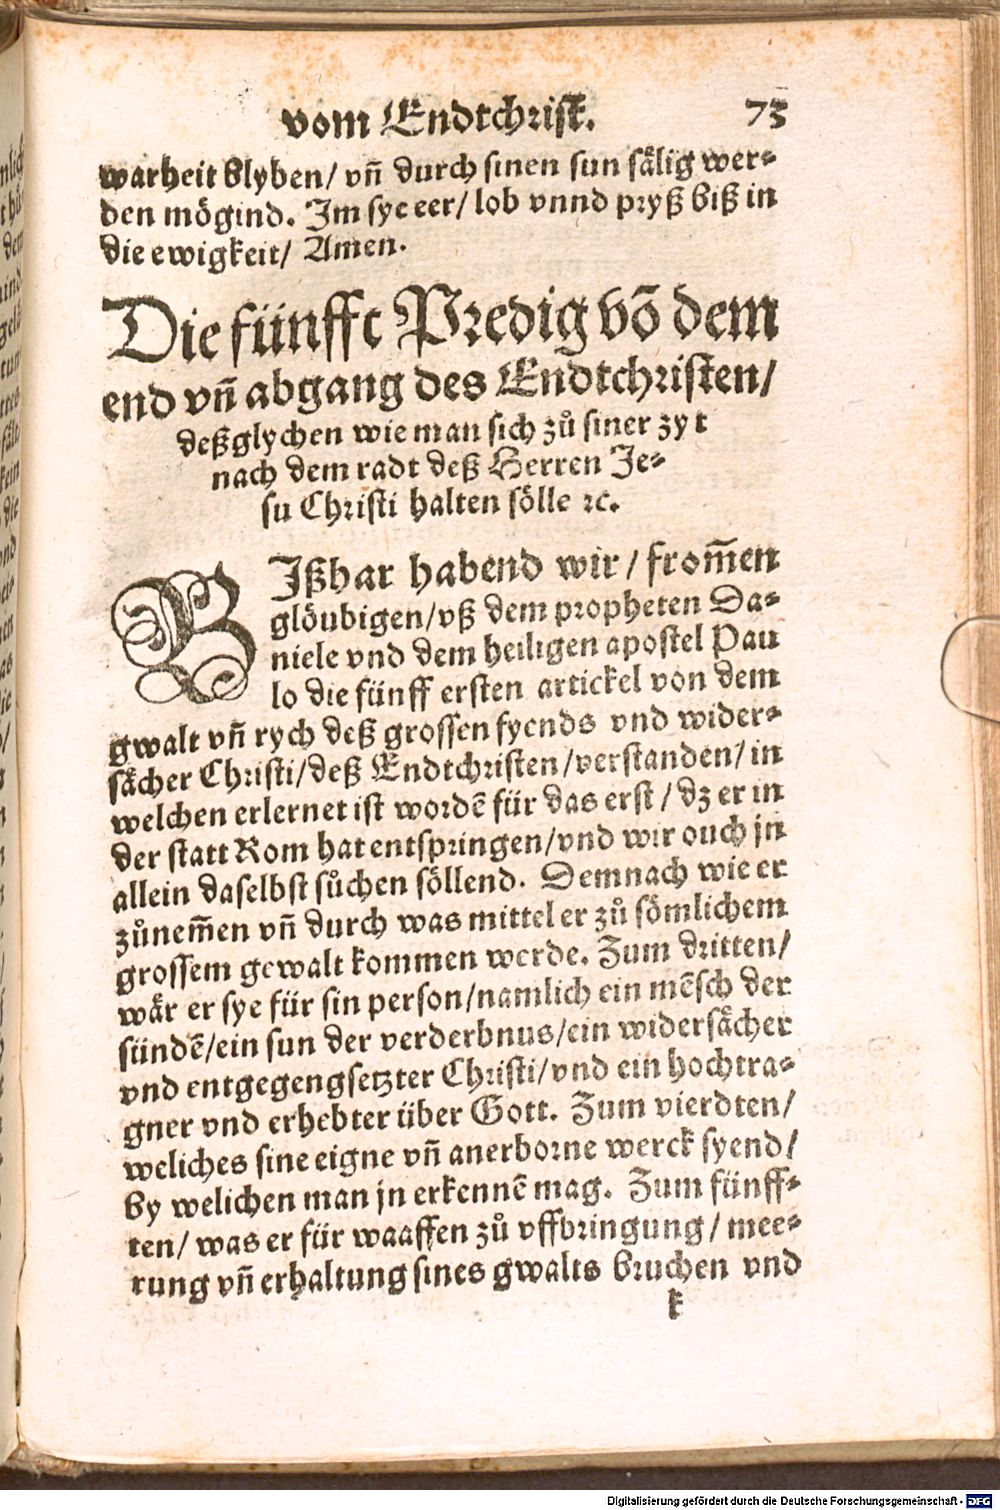 vom Endtchrist. 73
warheit blyben/ vñ durch sinen sun sålig wer-
den mögind. Im sye eer/ lob vnnd pryß biß in
die ewigkeit/ Amen.
Die fünfft Predig võ dem
end vñ abgang des Endtchristen/
deßglychen wie man sich zů siner zyt
nach dem radt deß Herren Je-
su Christi halten sölle ꝛc.
BIßhar habend wir/ from̃en
glöubigen/ vß dem propheten Da-
niele vnd dem heiligen apostel Pau
lo die fünff ersten artickel von dem
gwalt vñ rych deß grossen fyends vnd wider-
såcher Christi/ deß Endtchristen/ verstanden/ in
welchen erlernet ist wordẽ für das erst/ dz er in
der statt Rom hat entspringen/ vnd wir ouch jn
allein daselbst sůchen söllend. Demnach wie er
zůnem̃en vñ durch was mittel er zů sömlichem
grossem gewalt kommen werde. Zum dritten/
wår er sye für sin person/ namlich ein mẽsch der
sündẽ/ ein sun der verderbnus/ ein widersåcher
vnd entgegengsetzter Christi/ vnd ein hochtra-
gner vnd erhebter über Gott. Zum vierdten/
weliches sine eigne vñ anerborne werck syend/
by welichen man jn erkennẽ mag. Zum fünff-
ten/ was er für waaffen zů vffbringung/ mee-
rung vñ erhaltung sines gwalts bruchen vnd
k
Digitalisierung gefördert durch die Deutsche Forschungsgemeinschaft - DFG